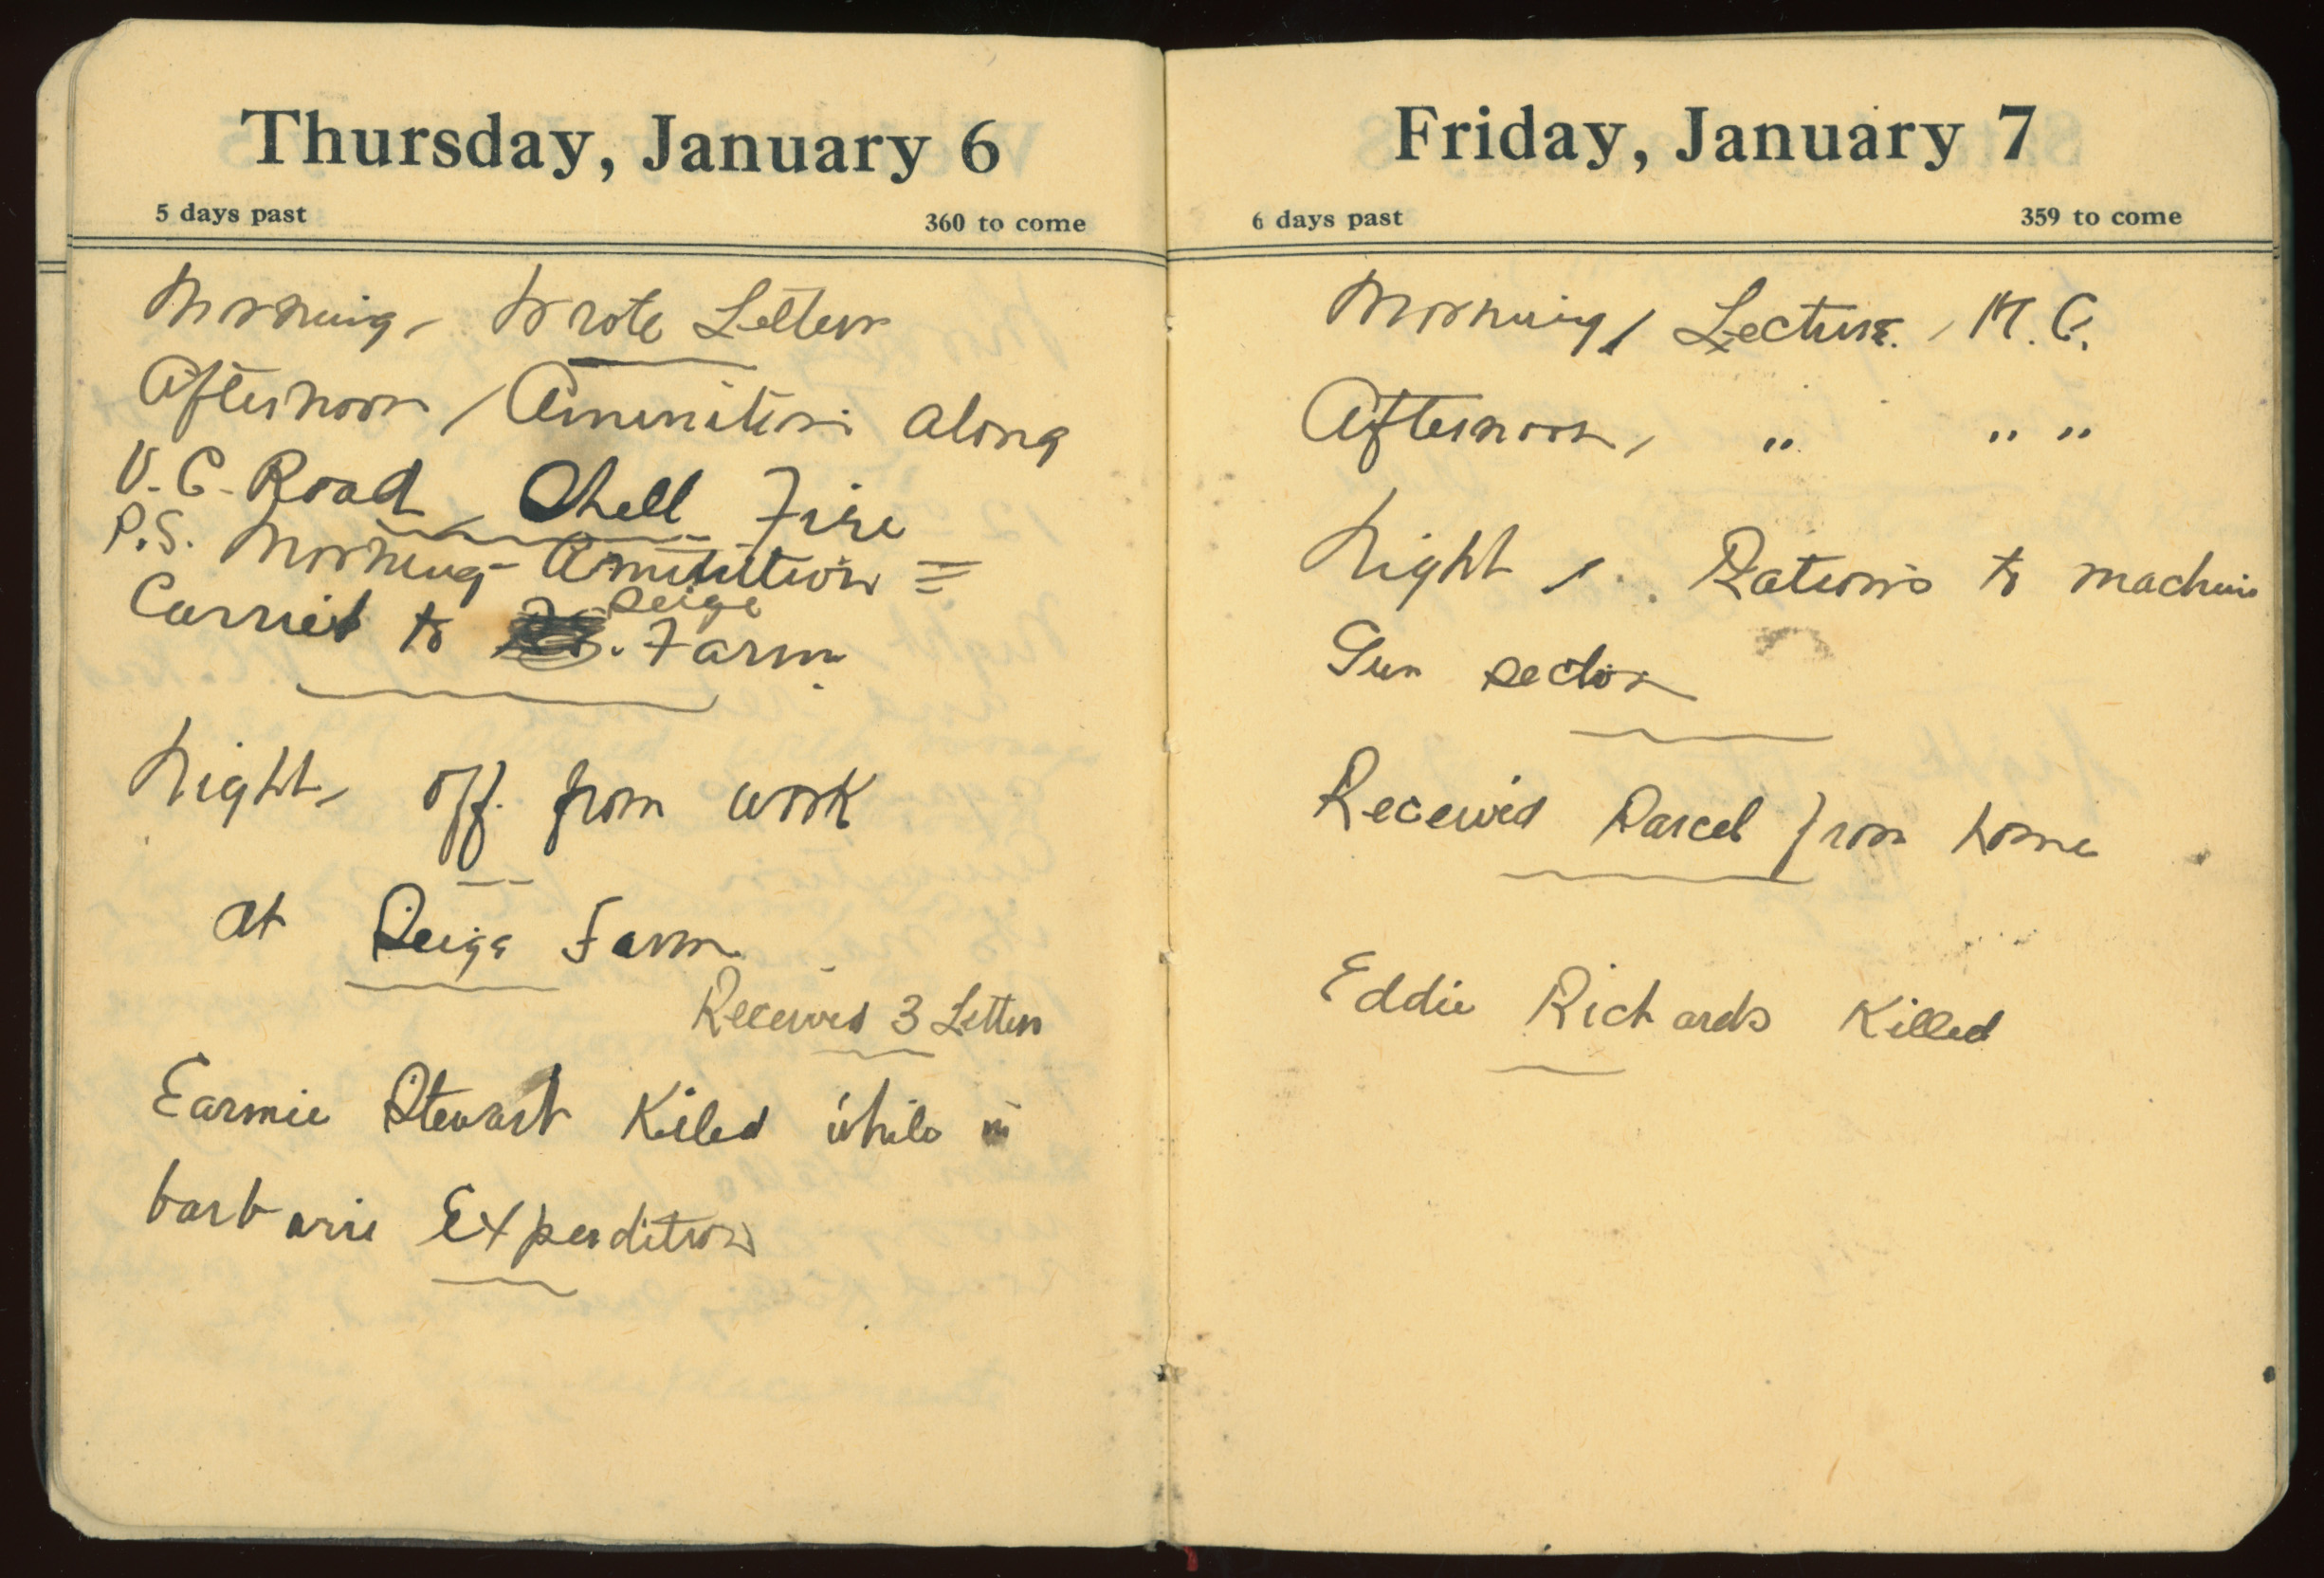 Thursday, January 6
5 days past 360 to come
Morning, Wrote Letters
Afternoon / Amunition along
V.C. Road, Shell Fire
P.S. Morning - Amunition =
Seige
Carried to . Farm.
Night, off. from work
at Seige Farm
Received 3 Letters
Earmie Stewart Killed while in
barbarie Expedition
Friday, January 7
6 days past 359 to come
Morning / Lecture. / M.G.
Afternoon, " " "
Night / . Rations to machine
Gun section
Received Parcel from home
Eddie Richards Killed